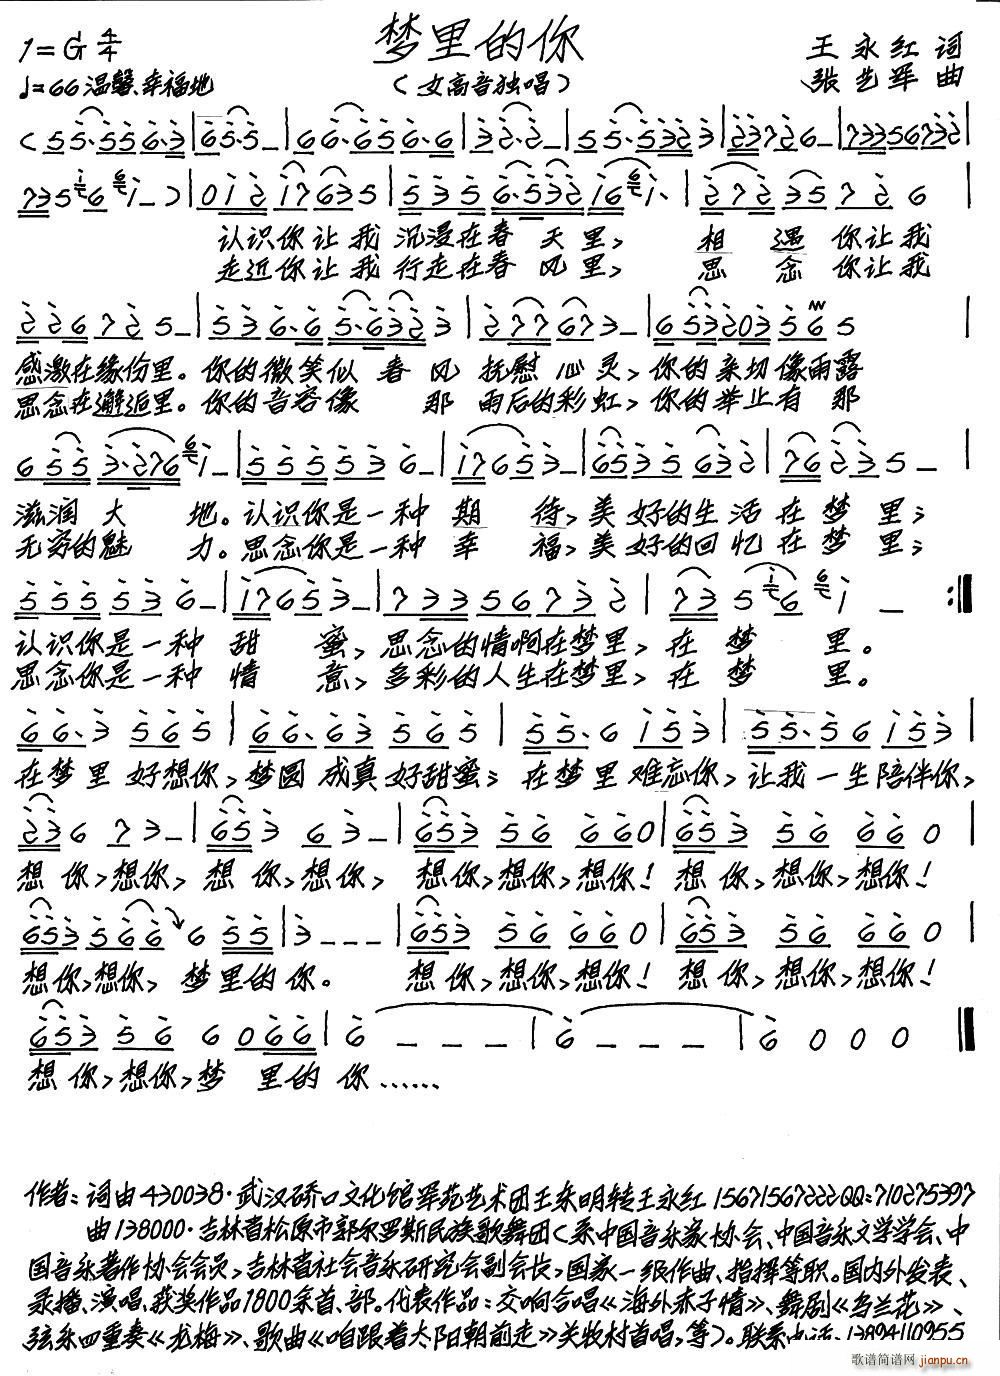 梦里的你
1=G 4/4
王永红 词
♩=66 温馨、幸福地
(女高音独唱)
张艺军 曲
认识你让我沉浸在春天里，相遇你让我
走近你让我行走在春风里，思念你让我
感激在缘份里。你的微笑似春风抚慰心灵，你的亲切像雨露
思念在邂逅里。你的音容像那雨后的彩虹，你的举止有那
滋润大地。认识你是一种期待，美好的生活在梦里；
无穷的魅力。思念你是一种幸福，美好的回忆在梦里；
认识你是一种甜蜜，思念的情啊在梦里，在梦里。
思念你是一种情意，多彩的人生在梦里，在梦里。
在梦里好想你，梦圆成真好甜蜜；在梦里难忘你，让我一生陪伴你，
想你，想你，想你，想你，想你，想你，想你！想你，想你，想你！
想你，想你，梦里的你。想你，想你，想你！想你，想你，想你！
想你，想你，梦里的你……
作者：词曲430038·武汉硚口文化馆军苑艺术团王东明转王永红15671567222QQ:710275397
曲138000·吉林省松原市郭尔罗斯民族歌舞团(系中国音乐家协会、中国音乐文学学会、中
国音乐著作协会会员，吉林省社会音乐研究会副会长，国家一级作曲、指挥等职。国内外发表、
录播、演唱、获奖作品1800余首、部。代表作品：交响合唱《海外赤子情》、舞剧《乌兰花》、
弦乐四重奏《龙梅》、歌曲《咱跟着太阳朝前走》关牧村首唱，等)。联系电话：13894110955
歌谱简谱网 jianpu.cn